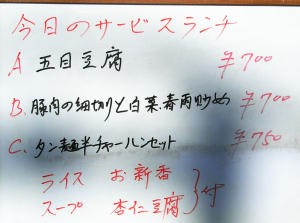 今日のサービスランチ
A 五目豆腐 ¥700
B. 豚肉の細切りと白菜、春雨炒め ¥700
C. タン麺半チャーハンセット ¥750
ライス お新香
スープ 杏仁豆腐 } 付